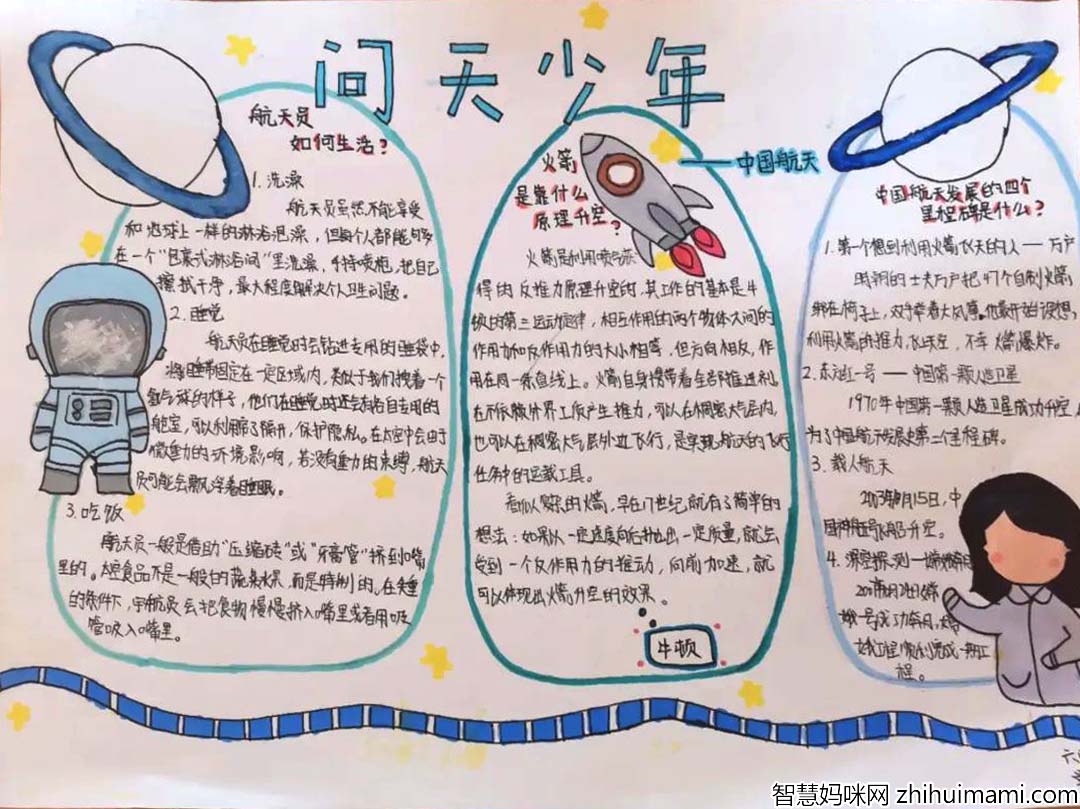 问天少年
航天员
如何生活？
1. 洗澡
航天员虽然不能享受
和地球上一样的淋浴泡澡，但每个人都能够
在一个"包裹式淋浴间"里洗澡，手持喷枪，把自己
擦拭干净，最大程度解决个人卫生问题。
2. 睡觉
航天员在睡觉时会钻进专用的睡袋中，
将睡带固定在一定区域内，类似于我们拽着一个
氢气球的样子，他们在睡觉时还会有各自专用的
舱室，可以利用帘子隔开，保护隐私。在太空中会由于
微重力的环境影响，若没有重力的束缚，航天
员可能会飘浮着睡眠。
3. 吃饭
航天员一般是借助"压缩砖"或"牙膏管"挤到嘴
里的。太空食品不是一般的蔬菜水果，而是特制的。在失重
的条件下，宇航员会把食物慢慢挤入嘴里或者用吸
管吸入嘴里。
火箭
是靠什么
原理升空？
火箭是利用喷气获
得的反推力原理升空的，其工作的基本是牛
顿的第三运动定律，相互作用的两个物体之间的
作用力和反作用力的大小相等，但方向相反，作
用在同一条直线上。火箭自身携带着全部推进剂，
在不依赖外界工质产生推力，可以在稠密大气层内，
也可以在稠密大气层外边飞行，是实现航天的飞行
任务中的运载工具。
看似复杂的火箭，早在17世纪就有了简单的
想法：如果以一定速度向后抛出一定质量，就会
受到一个反作用力的推动，向前加速，就
可以体现出火箭升空的效果。
牛顿
中国航天
中国航天发展的四个
里程碑是什么？
1. 第一个想到利用火箭飞天的人——万户
明朝的士大夫万户把47个自制火箭
绑在椅子上，双手举着大风筝。他最开始设想，
利用火箭的推力，飞上天空，不幸火箭爆炸。
2. 东方红一号——中国第一颗人造卫星
1970年中国第一颗人造卫星成功升空，
为了中国航天发展史第二个里程碑。
3. 载人航天
2003年10月15日，中
国神舟五号飞船升空。
4. 深空探测——嫦娥奔月
2007年10月24日嫦
娥一号成功奔月，嫦
娥工程顺利完成一期工
程。
智慧妈咪网 zhihuimami.com